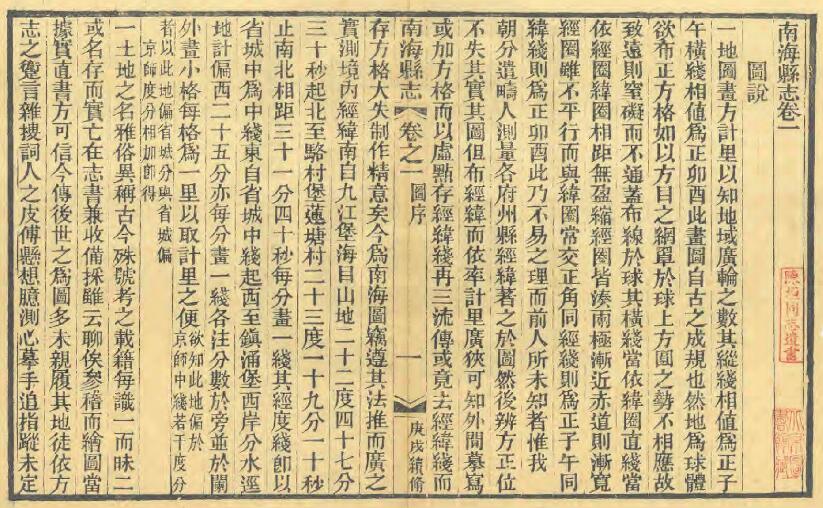 南海縣志卷一
圖說
一地圖畫方計里以知地域廣輪之數其縱綫相值爲正子
午橫綫相值爲正卯酉此畫圖自古之成規也然地爲球體
欲布正方格如以方目之網罩於球上方圓之勢不相應故
致遠則窒礙而不通蓋布線於球其橫綫當依緯圈直綫當
依經圈緯圈相距無盈縮經圈皆湊兩極漸近赤道則漸寬
經圈雖不平行而與緯圈常交正角同經綫則爲正子午同
緯綫則爲正卯酉此乃不易之理而前人所未知者惟我
朝分遣疇人測量各府州縣經緯著之於圖然後辨方正位
不失其實其圖但布經緯而依率計里廣狹可知外間摹寫
或加方格而以虛點存經緯綫再三流傳或竟去經緯綫而
南海縣志 卷之一 圖序 一 庚戌續修
存方格大失制作精意矣今爲南海圖竊遵其法推而廣之
實測境內經緯南自九江堡海目山地二十二度四十七分
三十秒起北至駱村堡蓮塘村二十三度一十九分一十秒
止南北相距三十一分四十秒每分畫一綫其經度綫卽以
省城中爲中綫東自省城中綫起西至鎮涌堡西岸分水逕
地計偏西二十五分亦每分畫一綫各注分數於旁並於闌
外畫小格每格爲一里以取計里之便
欲知此地偏於
京師中綫若干度分
者以此地偏省城分與省城偏
京師度分相加卽得
一土地之名雅俗異稱古今殊號考之載籍每識一而昧二
或名存而實亡在志書兼收備採雖云聊俟參稽而繪圖當
據實直書方可信今傳後世之爲圖多未親履其地徒依方
志之躗言雜摭詞人之皮傅懸想臆測心摹手追指蹤未定